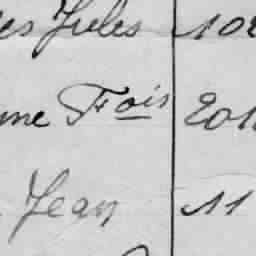 es Jules 102
me Fois 201
Jean 11